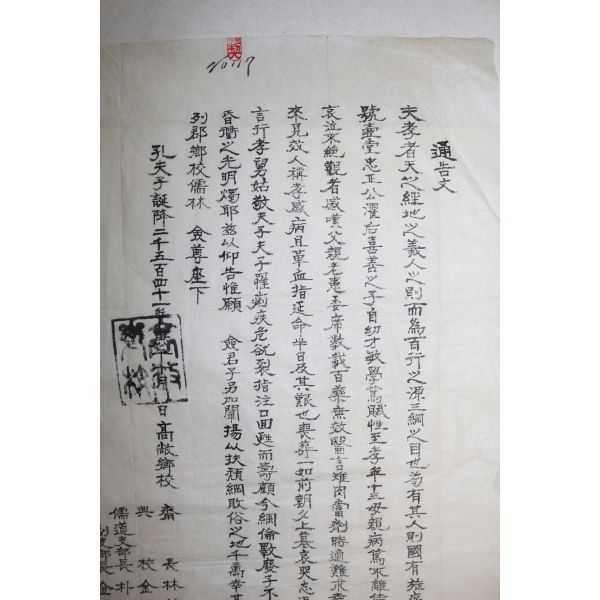 通告文
夫孝者天之經地之義人之則而為百行之源三綱之目也苟有其人則國有旌
號壺堂忠正公濯后喜善之子自幼才敏學篤賦性至孝年十三母親病篤不離
哀泣不絶觀者感嘆父親老患委席數載百藥無效醫言雉肉當劑時適難求
來見效人稱孝感病且革血指延命半日及其艱也喪葬一如前朝夕上墓哀哭忘
言行孝舅姑敬夫子夫子罹劇疾危欲裂指注口回甦而壽顧今綱倫斁廢子不
昏衢之光明燭耶玆以仰告惟願 僉君子另加闡揚以扶頹綱敗俗之地千萬幸甚
列郡鄉校儒林 僉尊座下
孔夫子誕降二千五百四十一年 月 日高敞鄉校
齋 長 林
典 校 金
儒道支部長 朴
支部長 金
20117